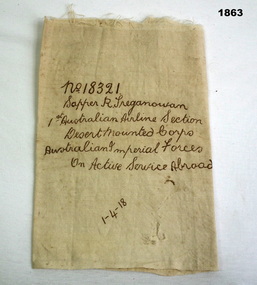 1863
No 18321
Sapper R Treganowan
1st Australian Airline Section
Desert Mounted Corps
Australian Imperial Forces
On Active Service Abroad
1-4-18